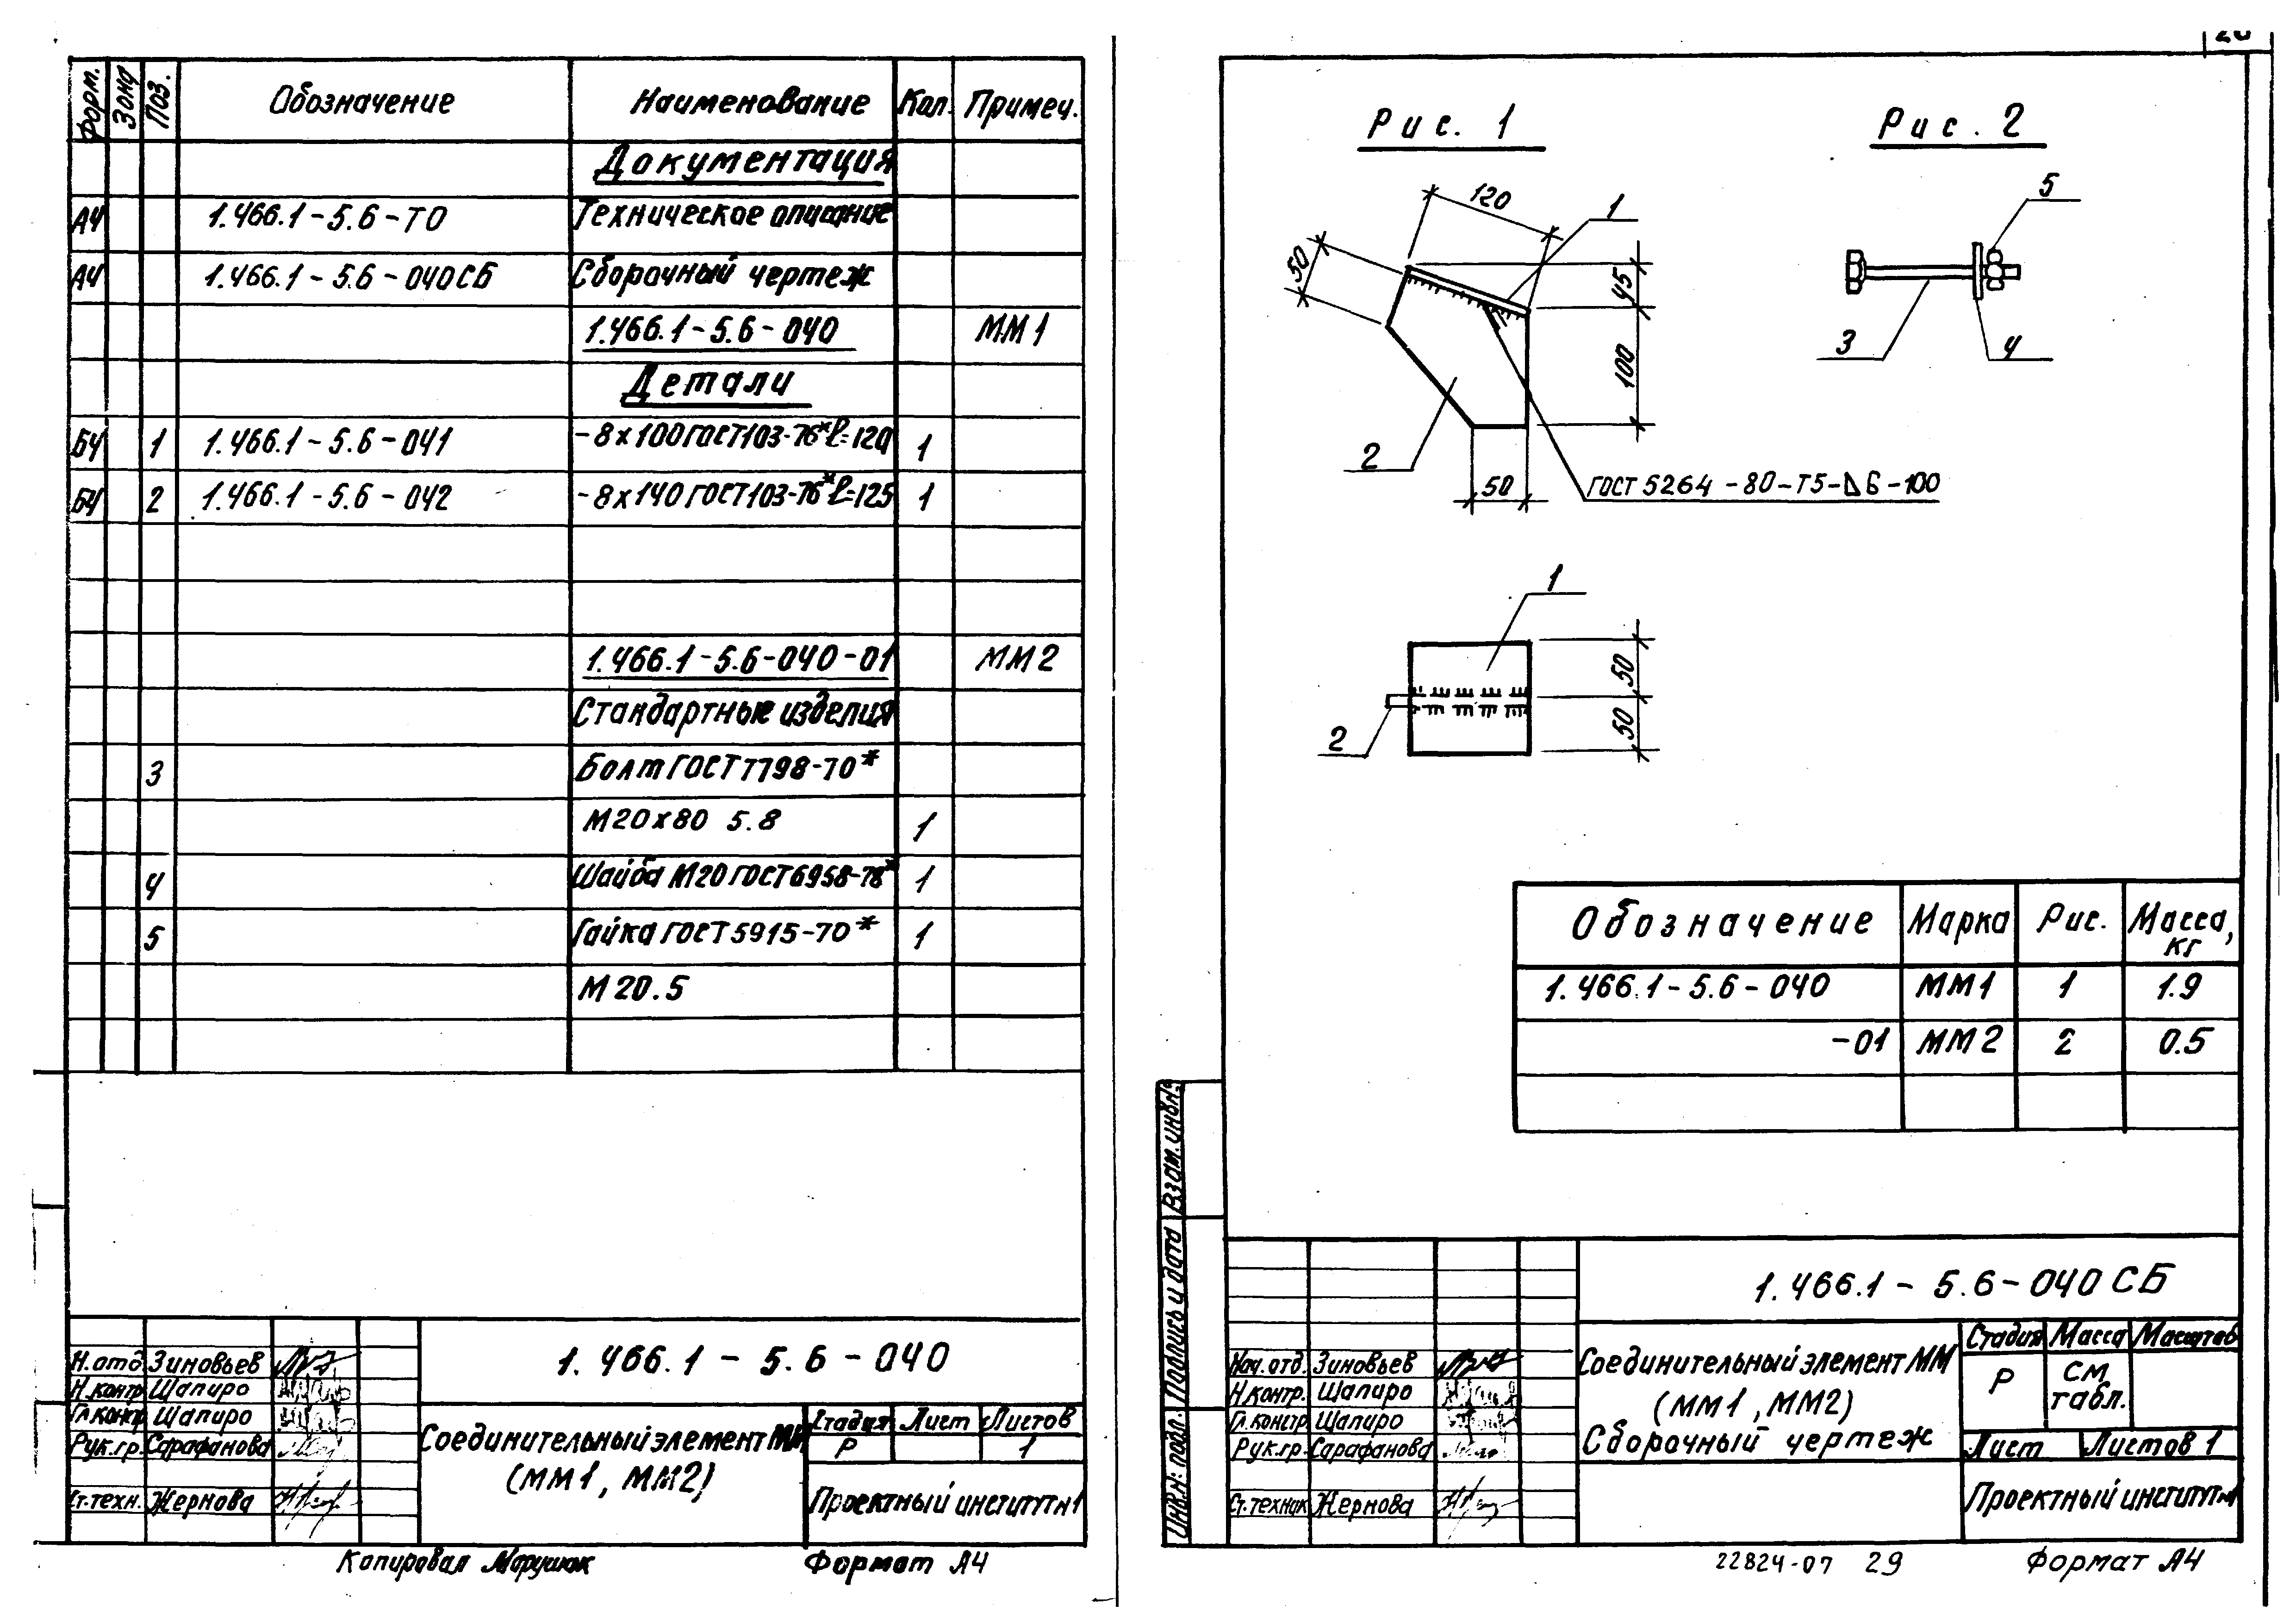 Форм. Зона Поз. Обозначение Наименование Кол. Примеч.
Документация
А4 1.466.1-5.6-ТО Техническое описание
А4 1.466.1-5.6-040СБ Сборочный чертеж
1.466.1-5.6-040 ММ1
Детали
Б4 1 1.466.1-5.6-041 -8х100ГОСТ103-76*ℓ=120 1
Б4 2 1.466.1-5.6-042 -8х140ГОСТ103-76*ℓ=125 1
1.466.1-5.6-040-01 ММ2
Стандартные изделия
3 Болт ГОСТ7798-70*
М20х80 5.8 1
4 Шайба М20 ГОСТ6958-78* 1
5 Гайка ГОСТ5915-70* 1
М20.5
1.466.1-5.6-040
Н.отд. Зиновьев
Н.контр. Шапиро
Гл.констр. Шапиро
Рук.гр. Сарафанова
Ст.техн. Жернова
Соединительный элемент ММ
(ММ1, ММ2)
Стадия Лист Листов
Р 1
Проектный институт №1
Копировал Формат А4
Рис. 1
120
1
50
45
100
2
50
ГОСТ 5264-80-Т5-⊿6-100
Рис. 2
5
3
4
1
50
50
2
Обозначение Марка Рис. Масса, кг
1.466.1-5.6-040 ММ1 1 1.9
-01 ММ2 2 0.5
Взам. инв.№
Подпись и дата
Инв.№ подл.
1.466.1-5.6-040СБ
Нач.отд. Зиновьев
Н.контр. Шапиро
Гл.констр. Шапиро
Рук.гр. Сарафанова
Ст.техник Жернова
Соединительный элемент ММ
(ММ1, ММ2)
Сборочный чертеж
Стадия Масса Масштаб
Р См. табл.
Лист Листов 1
Проектный институт №1
22824-07 29 Формат А4